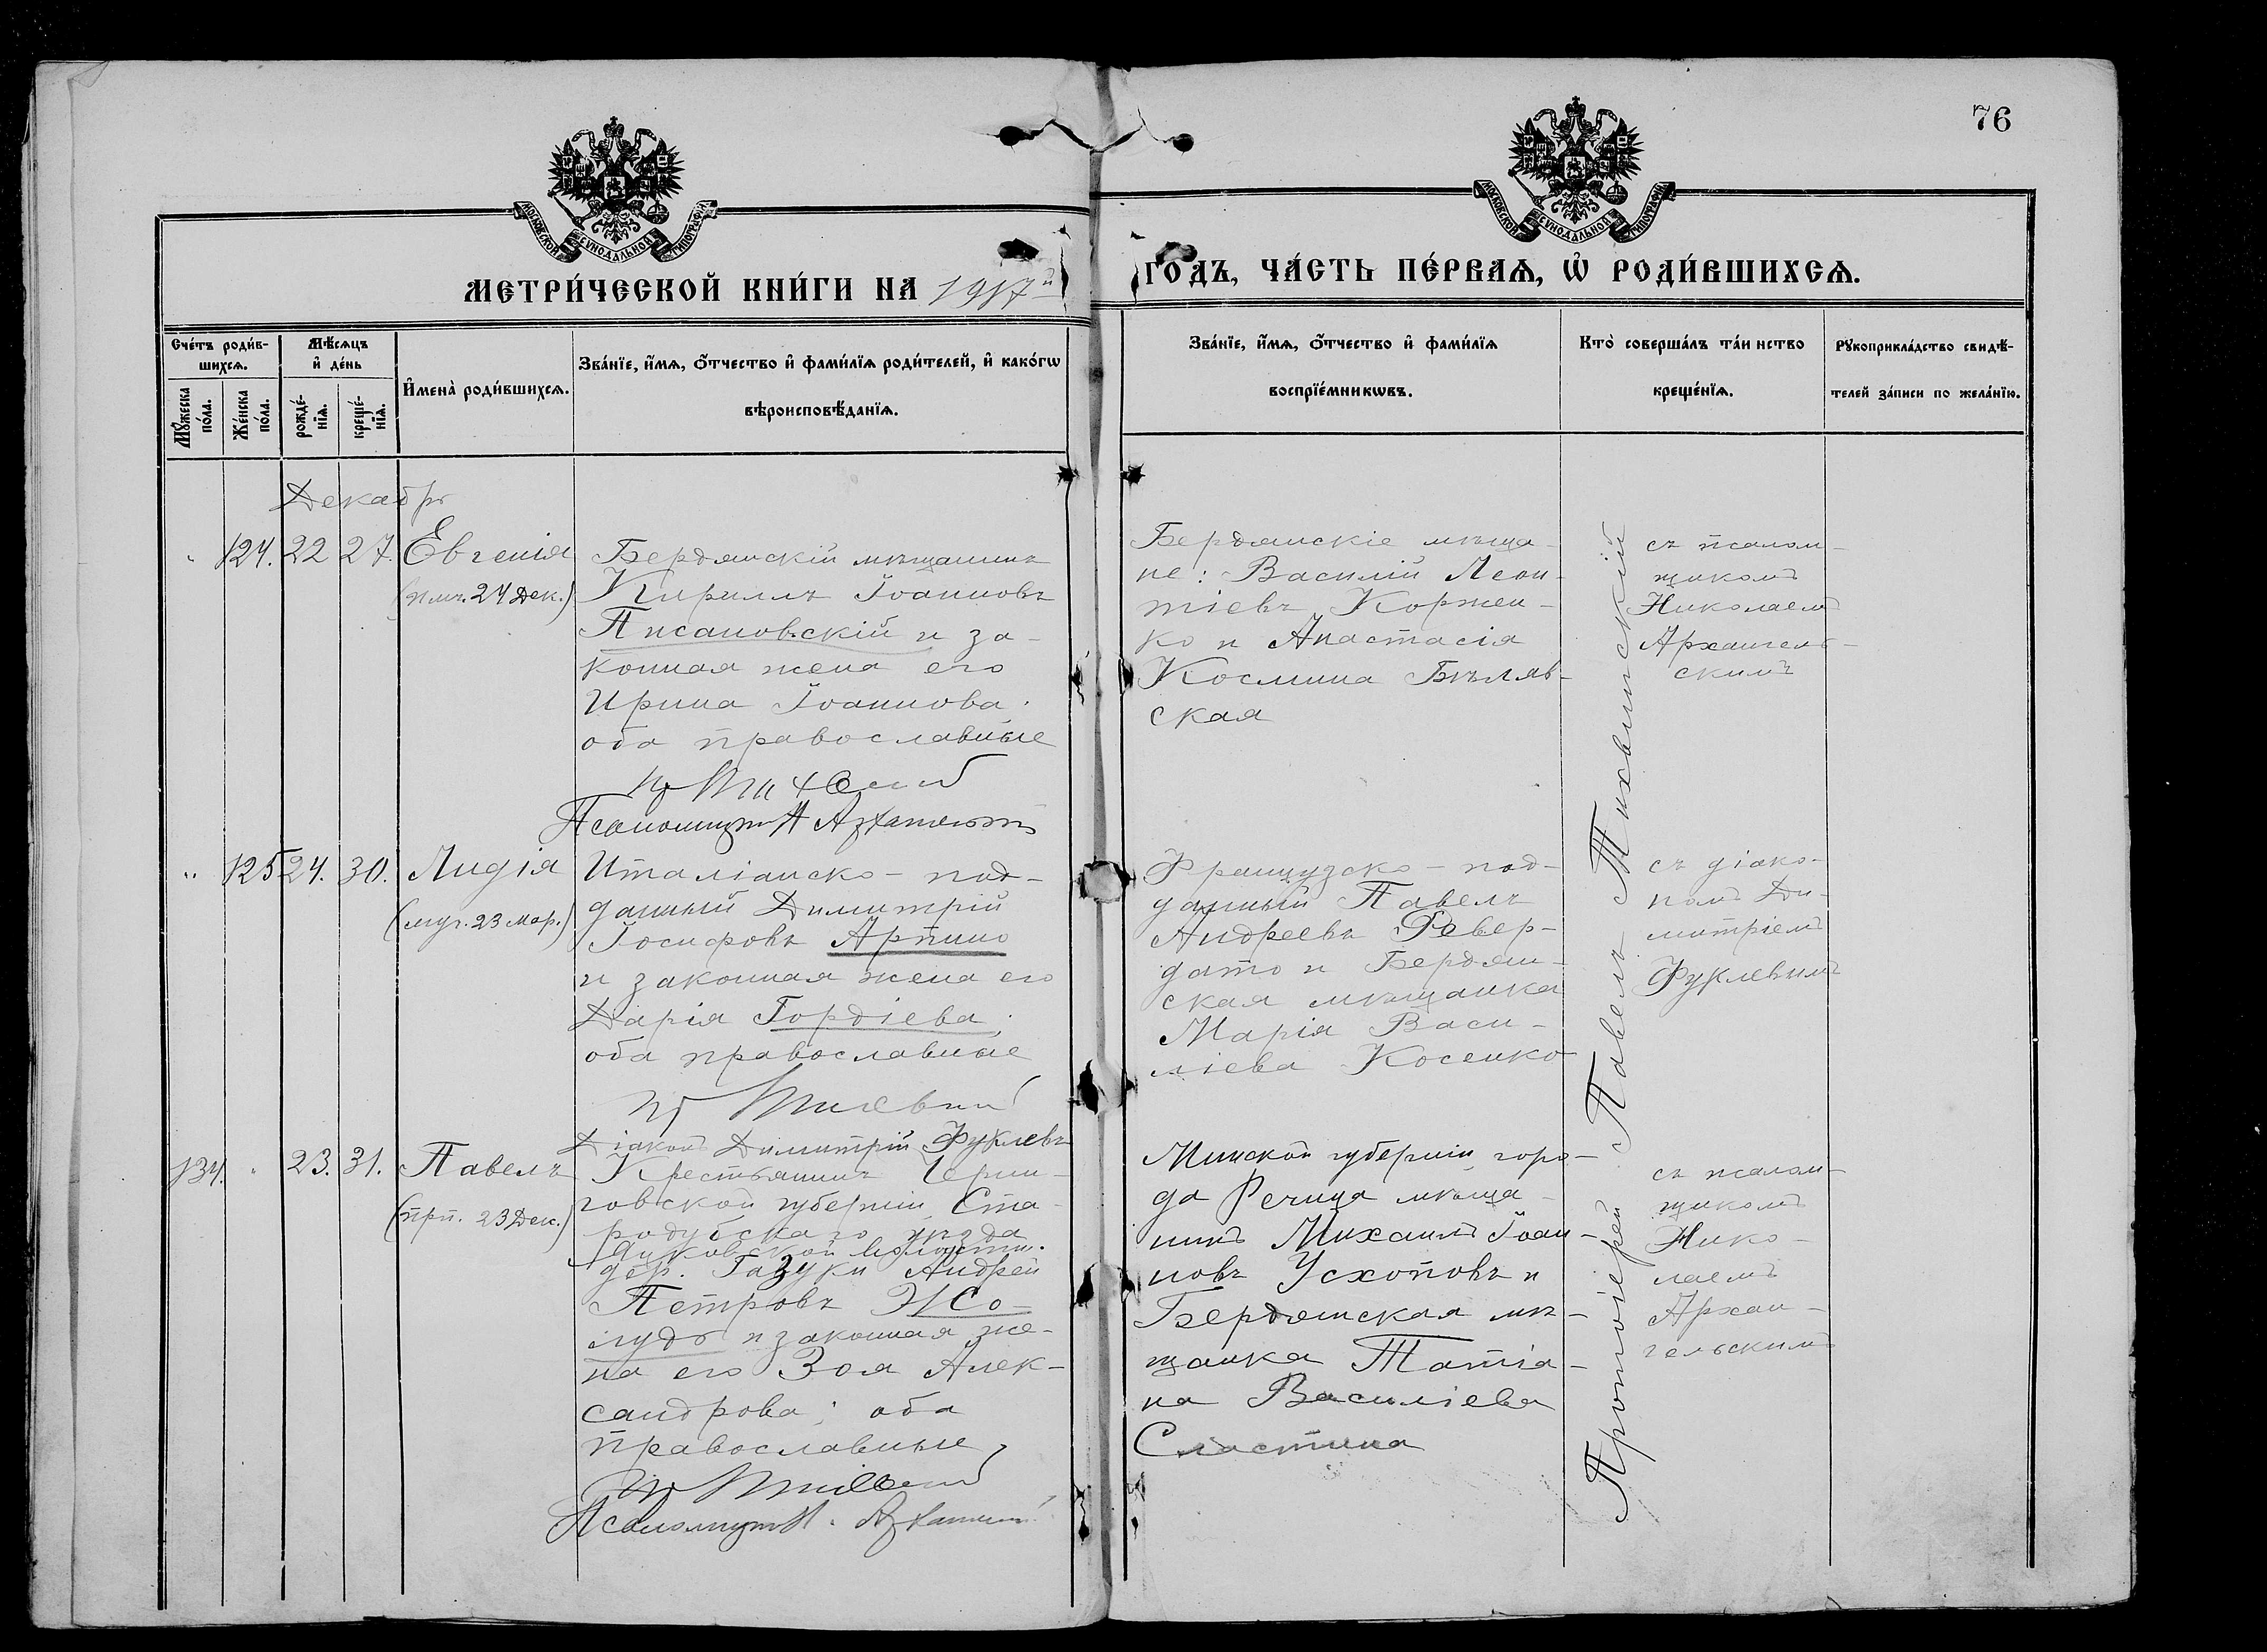 76
МОСКОВСКОЙ СУНОДАЛЬНОЙ ТИПОГРАФІИ
МОСКОВСКОЙ СУНОДАЛЬНОЙ ТИПОГРАФІИ
МЕТРИ́ЧЕСКОЙ КНИ́ГИ НА 1917й
ГОДЪ, ЧА́СТЬ ПЕ́РВАѦ, Ѡ҆ РОДИ́ВШИХСѦ.
Сче́тъ роди́в-
шихсѧ.
Мꙋ́жеска
по́ла.
Же́нска
по́ла.
Мѣ́сѧцъ
и҆ де́нь
рожде́-
нїѧ.
креще́-
нїѧ.
И҆мена̀ роди́вшихсѧ.
Зва́нїе, и҆́мѧ, ѻ҆́тчество и҆ фами́лїѧ роди́телей, и҆ како́гѡ
вѣроисповѣ́данїѧ.
Зва́нїе, и҆́мѧ, ѻ҆́тчество и҆ фами́лїѧ
воспрїе́мникѡвъ.
Кто̀ соверша́лъ та́инство
креще́нїѧ.
Рꙋкоприкла́дство свидѣ́-
телей за́писи по жела́нїю.
Декабрь
124. 22 27. Евгенія
(пмч. 24 Дек.)
Бердянскій мѣщанинъ
Кириллъ Іоанновъ
Писановскій и за-
конная жена его
Ирина Іоаннова;
оба православные
Бердянскіе мѣща-
не: Василій Леон-
тіевъ Коржен-
ко и Анастасія
Космина Бѣляв-
ская
Протоіерей Павелъ Тихвинскій
съ псалом-
щикомъ
Николаемъ
Архангель-
скимъ
Псаломщикъ Н Архангельскій
" 125 24. 30. Лидія
(муч. 23 мар.)
Италіанско-под-
данный Димитрій
Іосифовъ Арпино
и законная жена его
Дарія Гордіева;
оба православные
Діаконъ Димитрій Фуклевъ
Французско-под-
данный Павелъ
Андреевъ Ревер-
дато и Бердян-
ская мѣщанка
Марія Васи-
ліева Косенко
съ діако-
номъ Ди-
митріемъ
Фуклевымъ
134. " 23. 31. Павелъ
(прп. 23 Дек.)
Крестьянинъ Черни-
говской губерніи, Ста-
родубскаго уѣзда
волости.
дер. Газуки Андрей
Петровъ Жо-
лудь и законная же-
на его Зоя Алек-
сандрова; оба
православные
Псаломщикъ Н. Архангельскій
Минской губерніи, горо-
да Речица мѣща-
нинъ Михаилъ Іоан-
новъ Усхоповъ и
Бердянская мѣ-
щанка Татіа-
на Василіева
Сластина
съ псалом-
щикомъ
Нико-
лаемъ
Архан-
гельскимъ